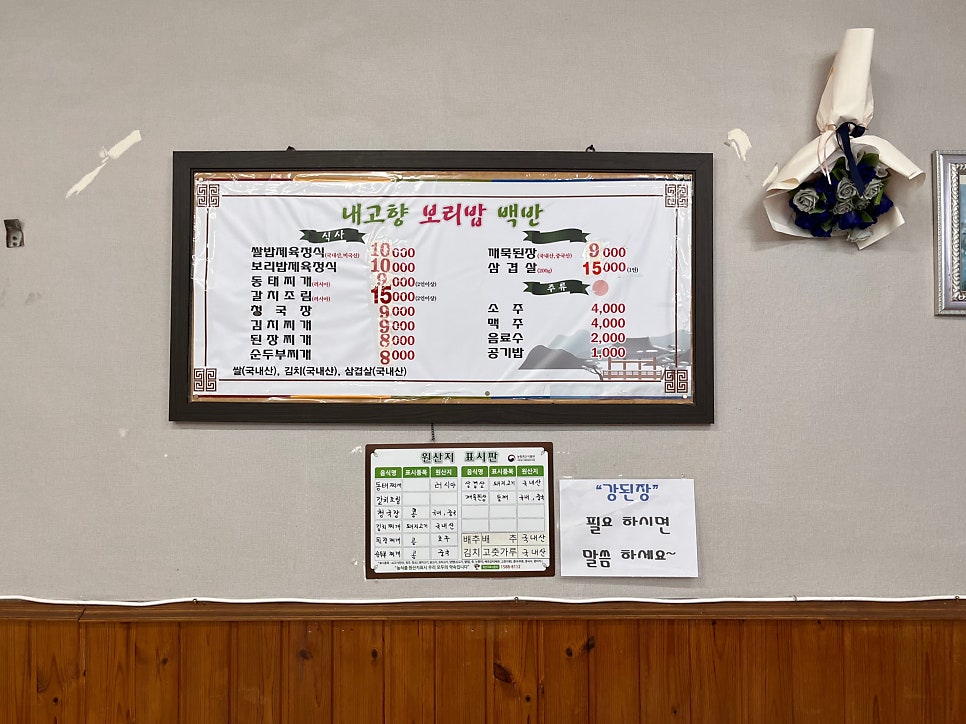 내고향 보리밥 백반
식사
쌀밥제육정식(국내산,미국산) 10000
보리밥제육정식 10000
동태찌개(러시아) 9,000(2인이상)
갈치조림 15000(2인이상)
청국장 9,000
김치찌개 9000
된장찌개 8000
순두부찌개 8000
쌀(국내산), 김치(국내산), 삼겹살(국내산)
깨묵된장(국내산,중국산) 9000
삼겹살(200g) 15000(1인)
주류
소주 4,000
맥주 4,000
음료수 2,000
공기밥 1,000
원산지 표시판
음식명 표시품목 원산지 음식명 표시품목 원산지
동태찌개 러시아 삼겹살 돼지고기 국내산
갈치조림
청국장 콩
김치찌개 돼지고기 국내산
콩 배추 배추 국내산
콩 중국 김치 고춧가루 국내산
"농식품 원산지표시 우리 모두의 약속입니다" 1588-8112
"강된장"
필요 하시면
말씀 하세요~